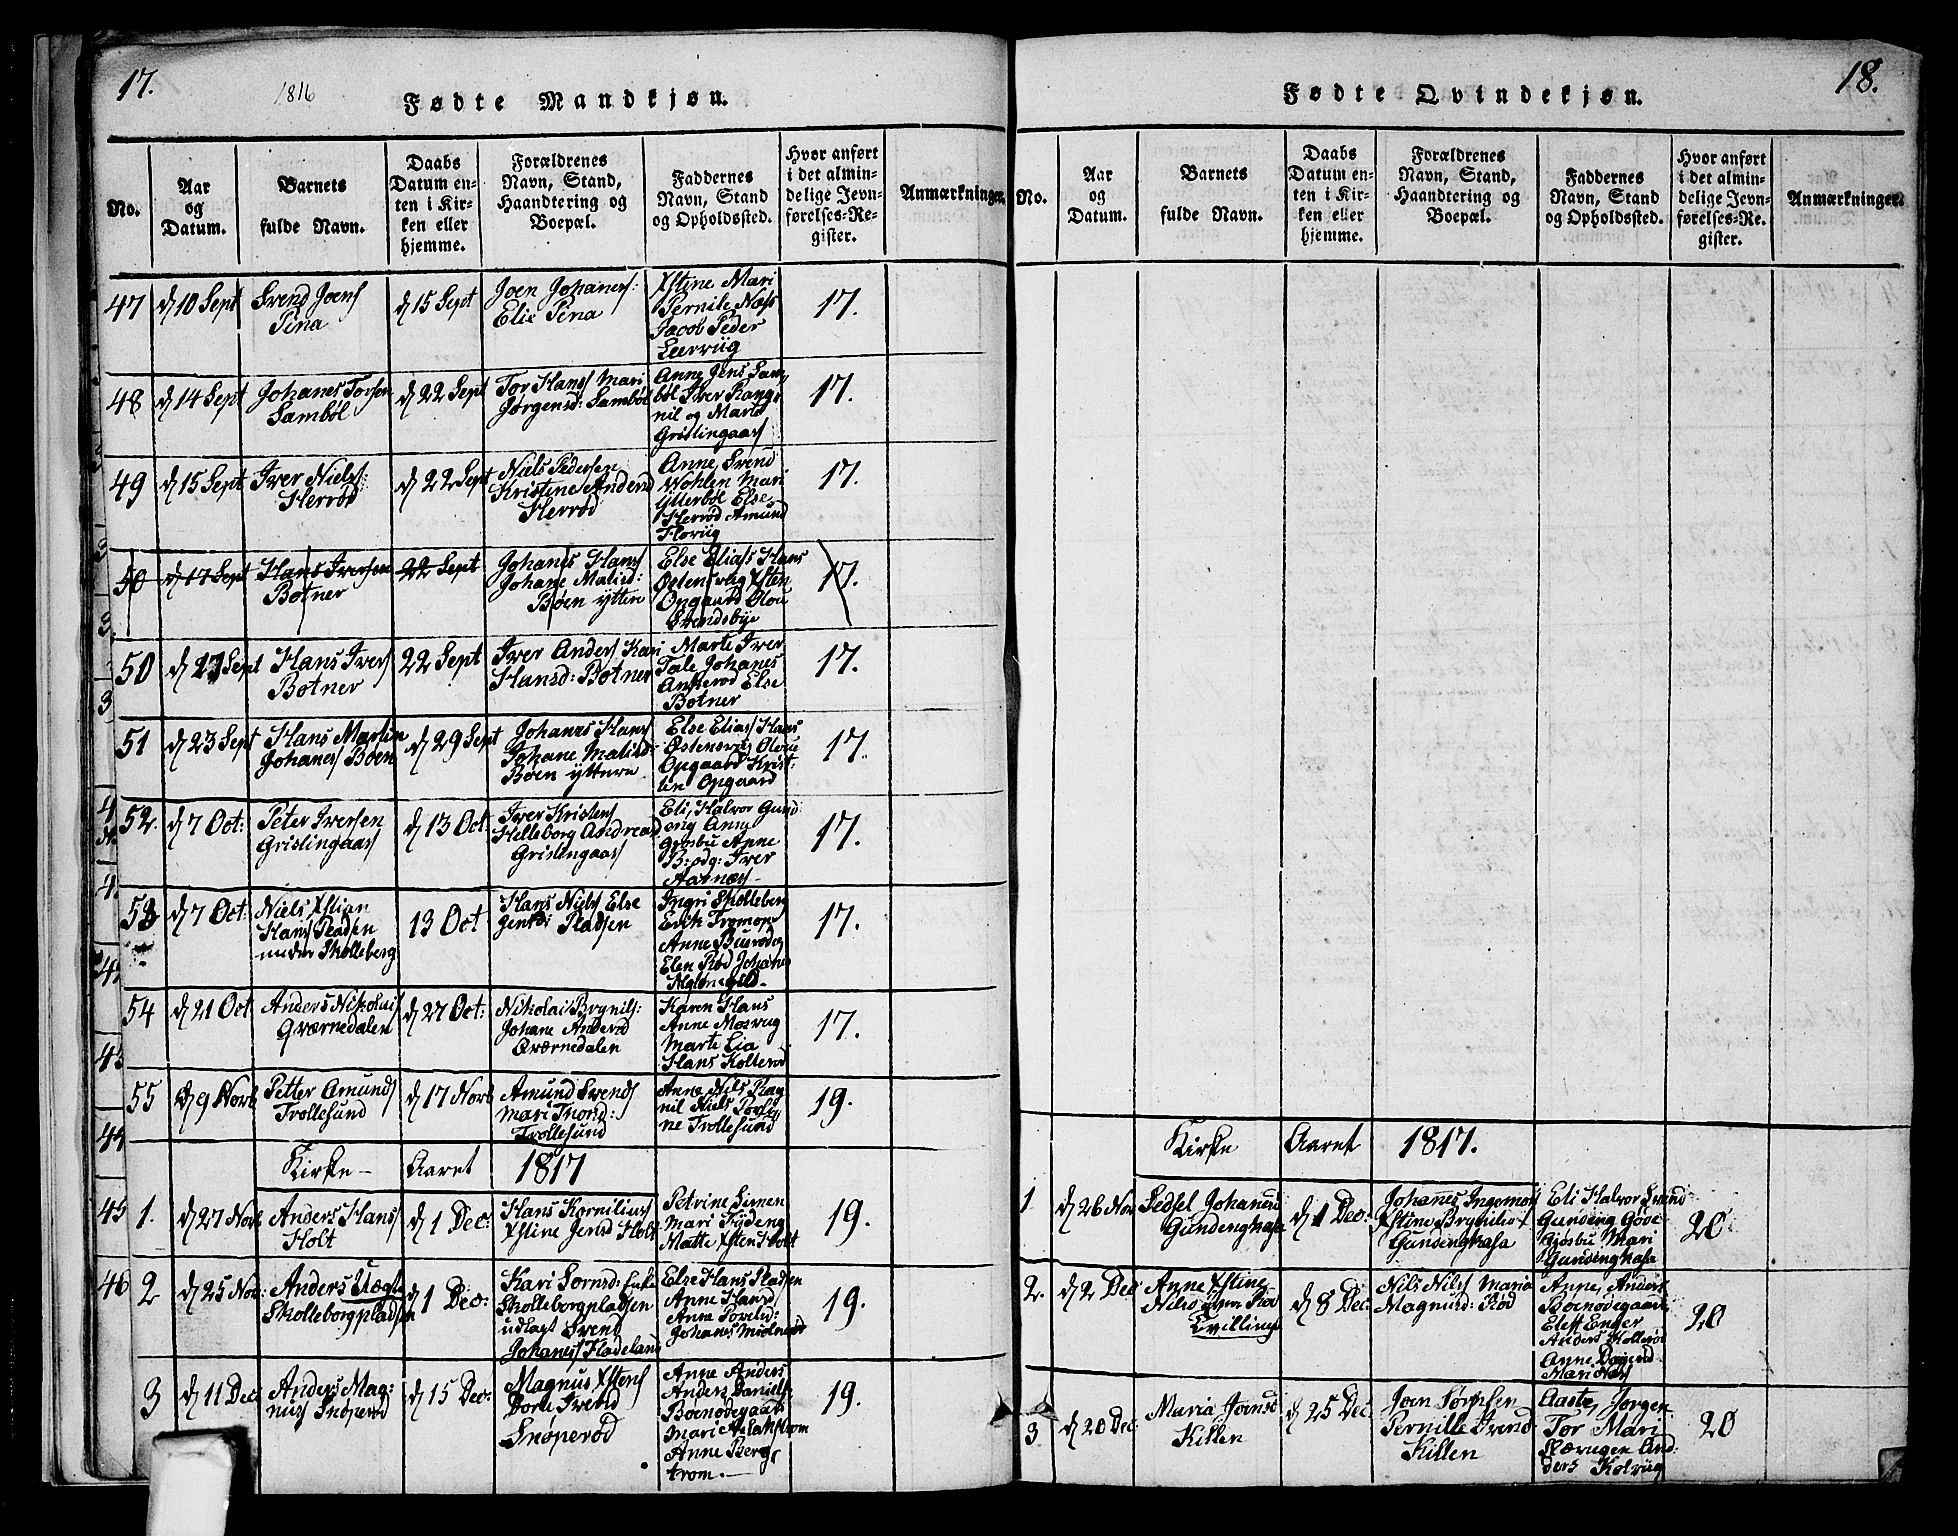 17.
1816
Fødte Mandkjøn.
No.
Aar
og
Datum.
Barnets
fulde Navn.
Daabs
Datum en-
ten i Kir-
ken eller
hjemme.
Forældrenes
Navn, Stand,
Haandtering og
Boepæl.
Faddernes
Navn, Stand
og Opholdssted.
Hvor anført
i det almin-
delige Jevn-
førelses-Re-
gister.
Anmærkninger.
47
d 10 Sept
Svend Joens
Pina
d 15 Sept
Joen Johanes:
Elie Pina
Xstine Mari
Pernile Næss
Jacob Peder
Leerviig
17.
48
d 14 Sept
Johanes Torsen
Sambøl
d 22 Sept
Tor Hans Mari
Jørgensd: Sambøl
Anne Jens Sam,
bøl Iver Rang,
nil og Marte
Grislingaas
17.
49
d 15 Sept
Iver Niels:
Herrød
d 22 Sept
Niels Pedersen
Kristine Andersd
Herrød
Anne Svend
Wohlen Mari
Ytterbøl Else
Herrød Amund
Floviig
17.
50
d 17 Sept
Hans Iversen
Botner
22 Sept
Johanes Hans
Johane Matisd:
Bøen yttere
Else Elias Hans
Østensvig Xsten
Opgaard Olou
Svendsbye
17.
50
d 17 Sept
Hans Ivers
Botner
22 Sept
Iver Anders Kari
Hansd: Botner
Marte Iver
Tale Johanes
Ankerød Else
Botner
17.
51
d 23 Sept
Hans Martin
Johanes Bøen
d 29 Sept
Johanes Hans
Johane Matisd:
Bøen yttere
Else Elias Hans
Østensvig Olou
Opgaard Krist-
ten Opgaard
17.
52.
d 7 Oct:
Peter Iversen
Grislingaas
d 13 Oct:
Iver Kristens
Helleborg Andreasd
Grislingaas
Eli, Halvor Gund
eng Anne
Gjøsbu Anne
Iver
Aarnæs
17.
53
d 7 Oct:
Niels Xstian
Hans Pladsen
under Skolleberg
13 Oct
Hans Niels Else
Jensd: Pladsen
Ingri Skolleberg
Erik Tromop
Anne Buerød og
Elen Rød Johanes
17.
54
d 21 Oct
Anders Nikolai
Qværnedalen
d 27 Oct:
Nikolai Brynils:
Johane Andersd
Qværnedalen
Karen Hans
Anne Mosvug
Marte Lia
Hans Kolterød
17.
55
d 9 Novb
Petter Amunds
Trollesund
d 17 Novb
Amund Svends
Mari Trond:
Trollesund
Anne Nils Rag
nil Niels Torli
ne Trollesund
19.
Kirke-
Aaret
1817
1.
d 27 Novb
Anders Hans
Holt
d 1 Dec:
Hans Kornilius
Xstine Jensd Holt
Petrine Simen
Mari Tydeng
Matte Xsten Holt
19.
2
d 25 Nov:
Anders Uægte
Skolleborgpladsen
d 1 Dec:
Kari Tornsd: Enke
Skolleborgpladsen
udlagt Svend
Johanes Fladeland
Else Hans Pladsen
Anne Hansd
Anne Torelsd:
Johanes Miølnerød
19.
3
d 11 Dec
Anders Mag:
nus Snøperød
d 15 Dec:
Magnus Xstens
Dorte Svend
Snøperød
Anne Anders
Anders Daniels:
Bøenødegaar
Mari Aslakstrom
Anne Berg,
trom.
19.
18.
Fødte Qvindekjøn.
No.
Aar
og
Datum.
Barnets
fulde Navn.
Daabs
Datum en-
ten i Kir-
ken eller
hjemme.
Forældrenes
Navn, Stand,
Haandtering og
Boepæl.
Faddernes
Navn, Stand
og Opholdssted.
Hvor anført
i det almin-
delige Jevn-
førelses-Re-
gister.
Anmærkninger.
Kirke
Aaret
1817.
1
d 26 Nov
Sedsel Johanesd
Gundenghasa
d 1 Dec:
Johanes Ingemors
Xstine Brynilsd
Gundenghasa
Eli Halvor Svend
Gundeng Gove
Gjøsbu Mari
Gundenghasa
20
2.
d 2 Dec
Anne Xstine
Nilsd Rød
Tvillinge
d 8 Dec:
Nils Nils Maria
Magnusd: Rød
Anne, Anders
Bøenødegaard
Eleff Enger
Anders Kollerød
Anne Dagend
Mari Næs
20
3
d 20 Dec
Maria Joensd
Killen
d 25 Dec:
Joen Torgersen
Pernille Svend
Killen
Aaste, Jørgen
Tor Mari
Slærugen And:
ders Kolviig
20